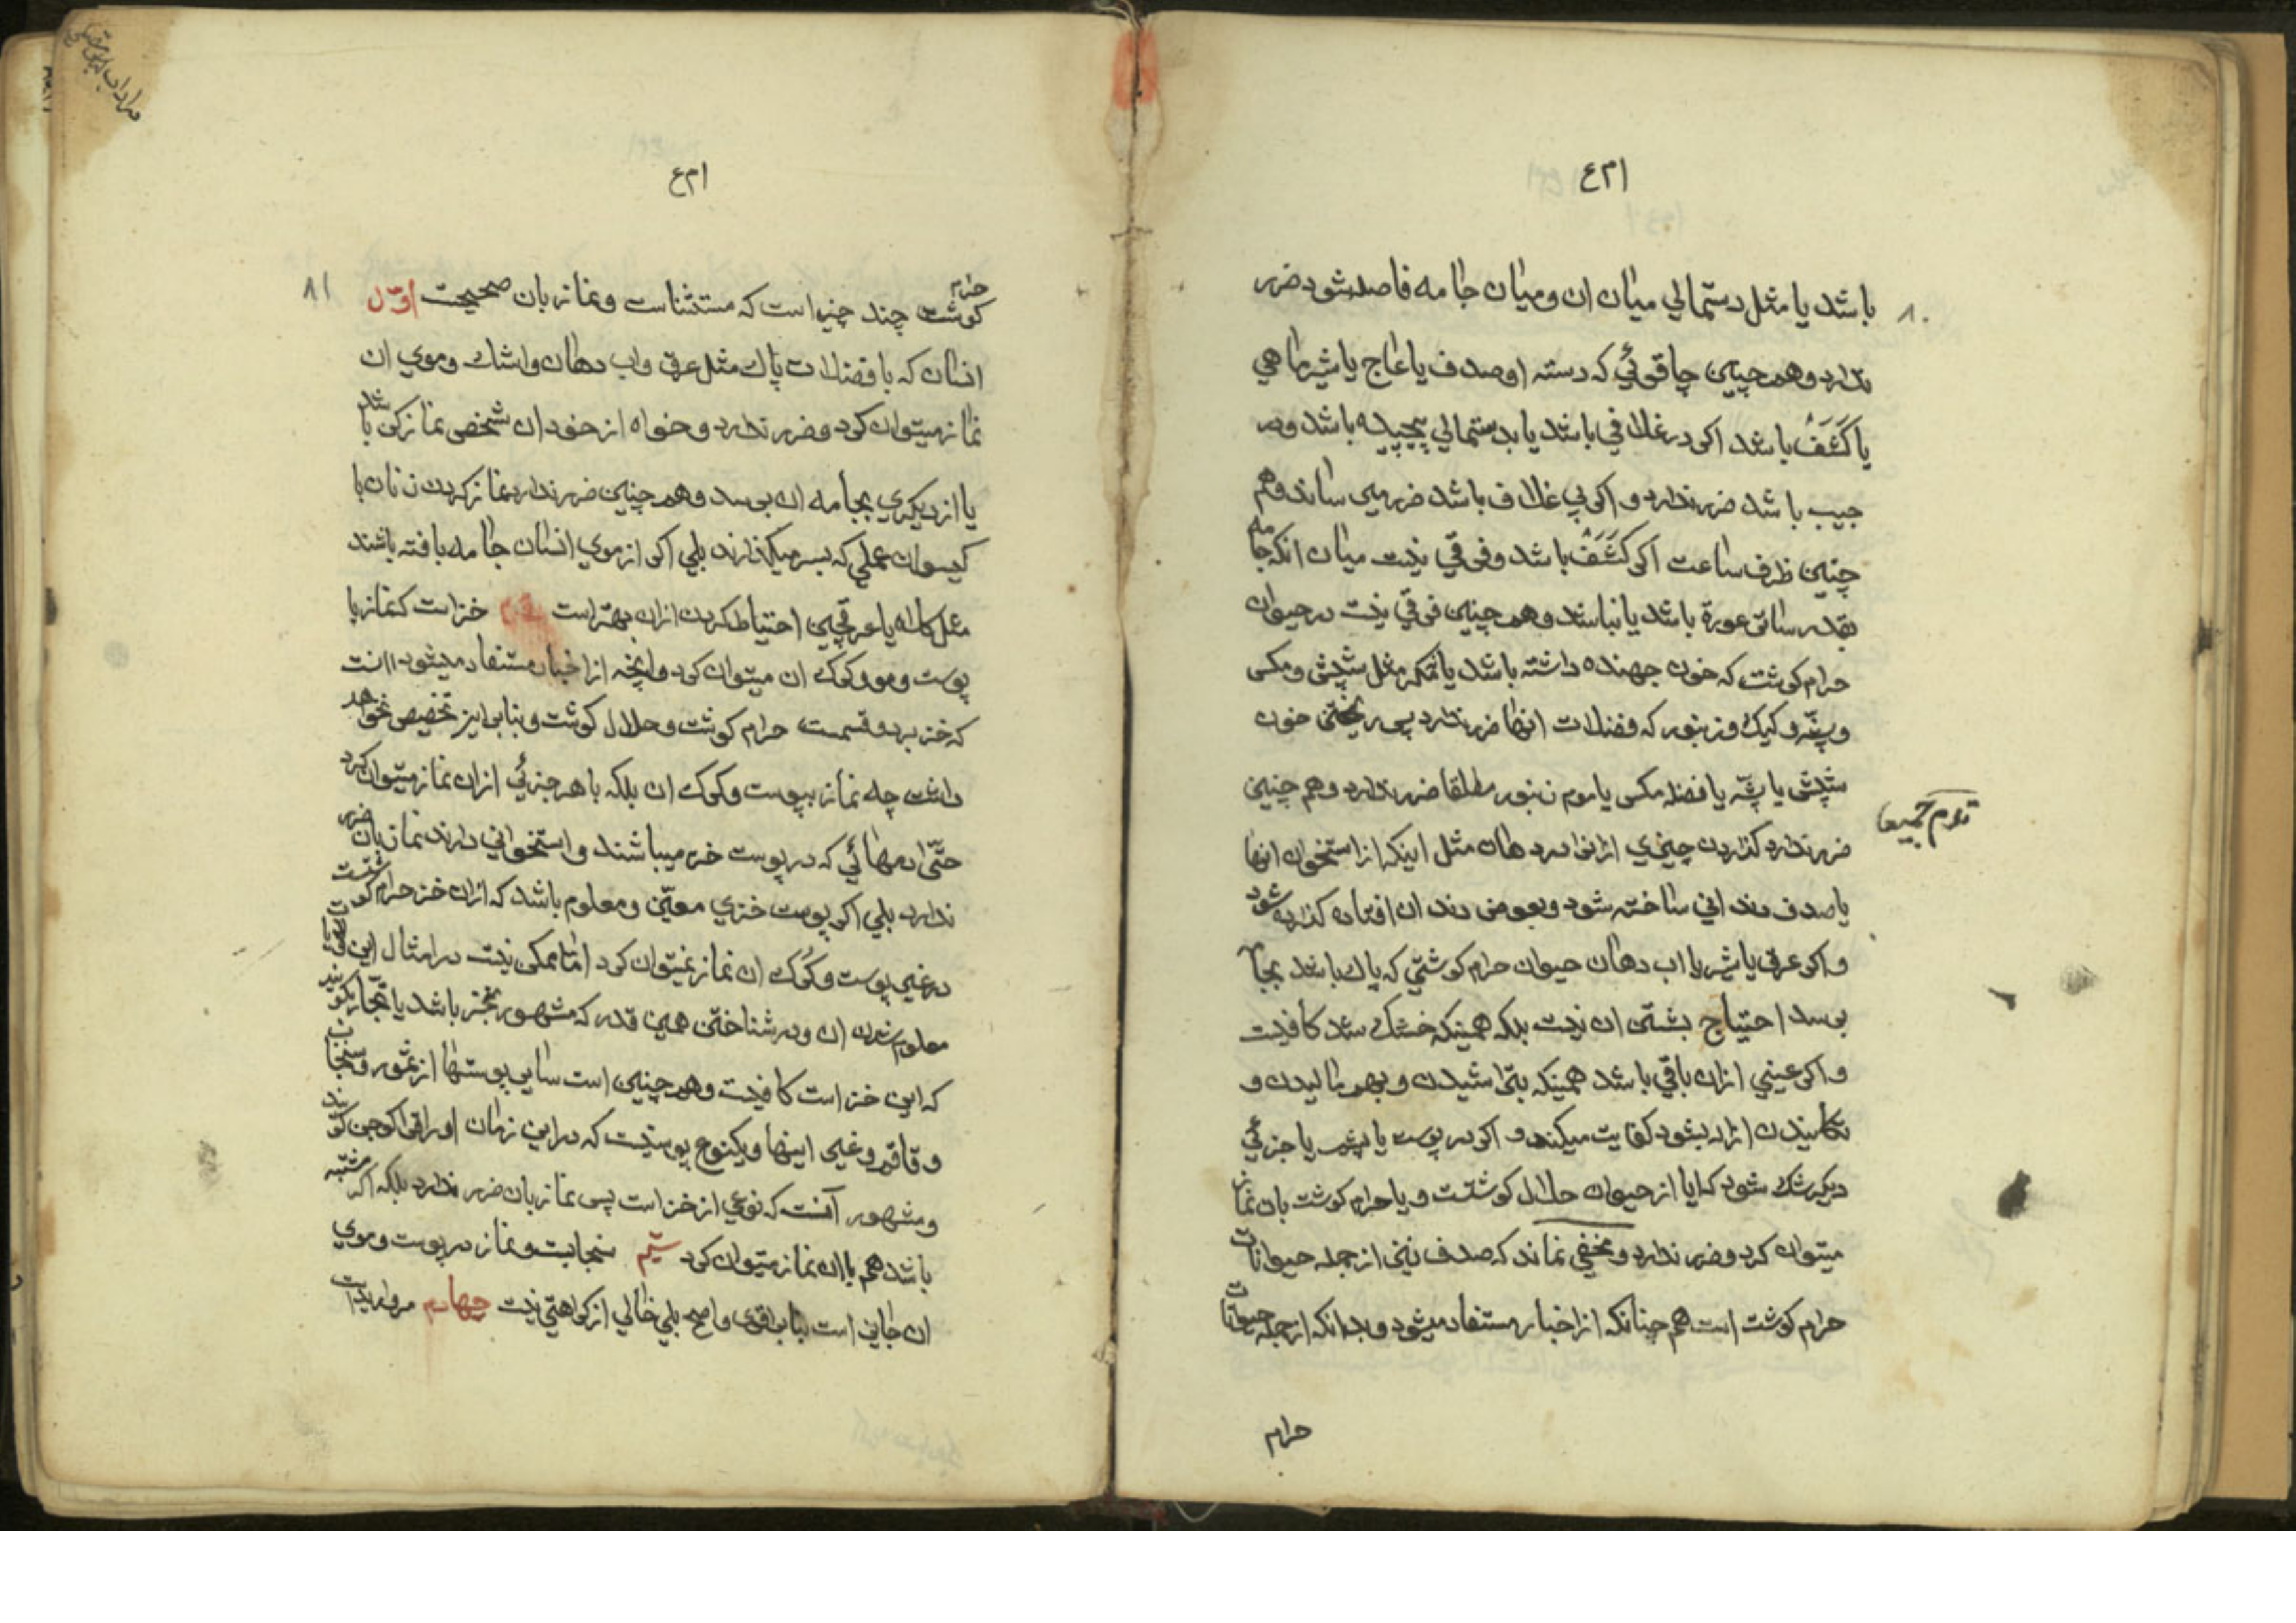 ۱م۴
۸۰
باشد یا مثل دستمالی میان ان و میان جامه فاصله شود ضرر
ندارد وهمچنین چاقوئی که دسته او صدف یا عاج یا شیرماهی
یا کَشَفْ باشد اکر در غلافی باشد یا بدستمالی پیچیده باشد ودر
جیب باشد ضرر ندارد و اکر بی غلاف باشد ضرر میرساند وهم
چنین ظرف ساعت اکر کَشَفْ باشد وفرقی نیست میان انکه جامه
بقدر ساتر عورة باشد یا نباشد وهمچنین فرقی نیست در حیوان
حرام کوشت که خون جهنده داشته باشد یا نه مکر مثل شپش و مکس
وپشّه و کیك و زنبور که فضلات انها ضرر ندارد پس ریختن خون
شپش یا پشّه یا فضلهٔ مکس یا موم زنبور مطلقا ضرر ندارد وهم چنین
ضرر ندارد کذاردن چیزی ازانها در دهان مثل اینکه از استخوان انها
یا صدف دندانی ساخته شود و بعوض دندان افتاده کذارده شود
و اکر عرق یا شیر یا اب دهان حیوان حرام کوشتی که پاك باشد بجامه
برسد احتیاج بشستن ان نیست بلکه همینکه خشك شد کافیست
و اکر عینی ازان باقی باشد همینکه بتراشیدن و بهم مالیدن و
تکانیدن ازاله بشود کفایت میکند و اکر در پوست یا پشم یا جزئی
دیکر شك شود که ایا از حیوان حلال کوشتست و یا حرام کوشت بان نماز
میتوان کرد و ضرر ندارد و مخفی نماند که صدف نیز از جمله حیوانات
حرام کوشت است هم چنانکه از اخبار مستفاد میشود و بدانکه از جمله حیوانات
حرام
۱م۴
۸۱
حرام
کوشت چند چیز است که مستثناست و نماز بان صحیحست اوّل
انسان که با فضلات پاك مثل عرق واب دهان واشك وموی ان
نماز میتوان کرد و ضرر ندارد و خواه از خود ان شخص نماز کن باشد
یا از دیکری بجامه ان برسد وهمچنین ضرر ندارد نماز کردن زنان با
کیسوان عملی که بسر میکذارند بلی اکر از موی انسان جامه بافته باشند
مثل کلاه یا عرقچین احتیاط کردن ازان بهتر است دویم خز است که نماز با
پوست و مو و کرك ان میتوان کرد وانچه از اخبار مستفاد میشود انست
که خز بر دو قسمست حرام کوشت و حلال کوشت و بنابراین تخصیصی نخواهد
داشت چه نماز بپوست وکرك ان بلکه با هر جزئی ازان نماز میتوان کرد
حتّی دمهائی که در پوست خز میباشند و استخوانی دارند نماز بان ضرر
ندارد بلی اکر پوست خزی معیّن و معلوم باشد که ازان خز حرام کوشتست
در غیر پوست و کُرك ان نماز نمیتوان کرد امّا ممکن نیست در امثال این
معلوم شدن ان و در شناختن همین قدر که مشهور بخز باشد یا تجّار بکویند
که این خز است کافیست وهمچنین است سایر پوستها از سمور و سنجاب
و قاقم و غیر اینها و یکنوع پوستیست که در این زمان
ومشهور آنست که نوعی از خز است پس نماز بان ضرر ندارد بلکه اکر مشتبه
باشد هم باان نماز میتوان کرد سیّم سنجابست و نماز در پوست و موی
ان جایز است بنابر اقوی واصح بلی خالی از کراهتی نیست چهارم مروارید است